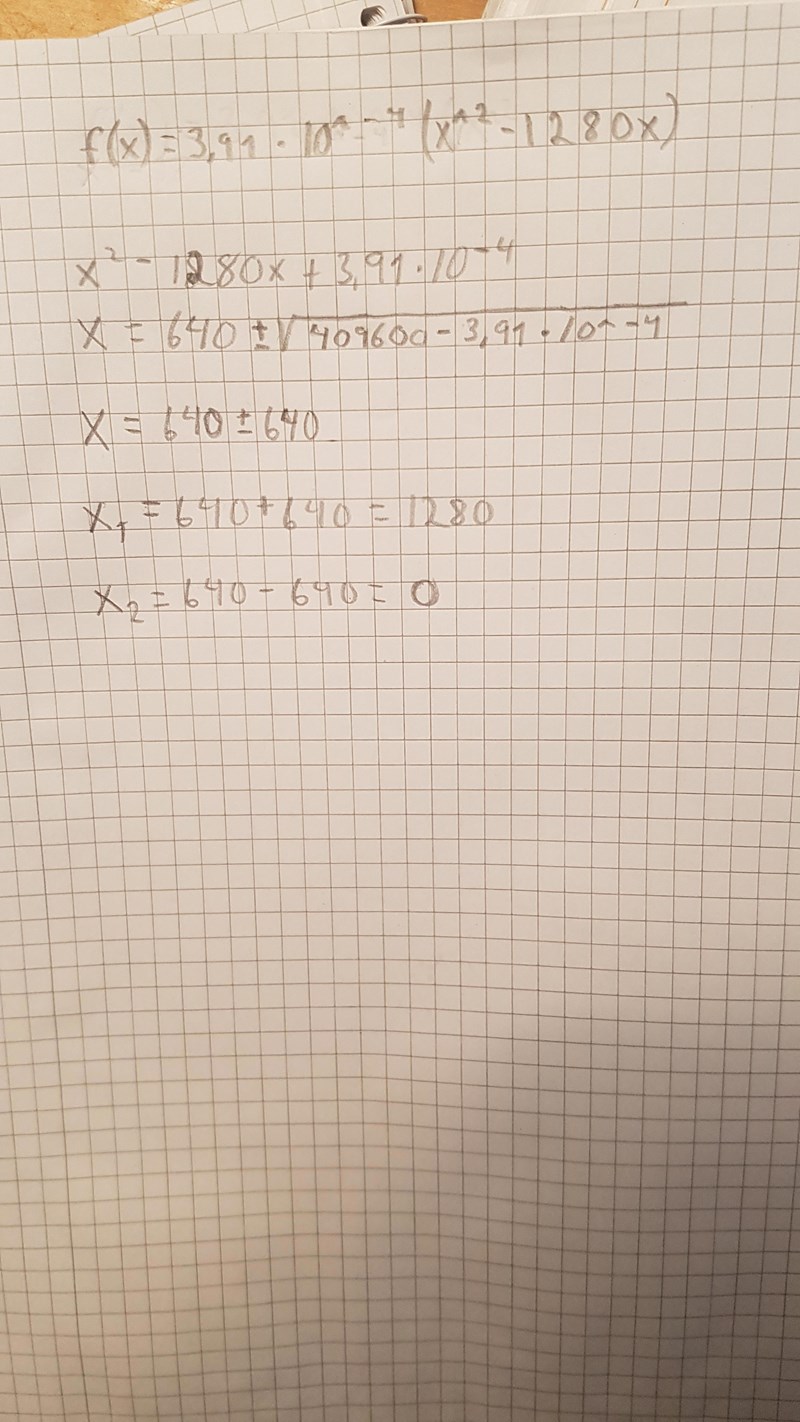 f(x) = 3,91 · 10^-4 (x^2 - 1280x)
x² - 1280x + 3,91 · 10⁻⁴
x = 640 ± √409600 - 3,91 · 10^-4
x = 640 ± 640
x₁ = 640 + 640 = 1280
x₂ = 640 - 640 = 0